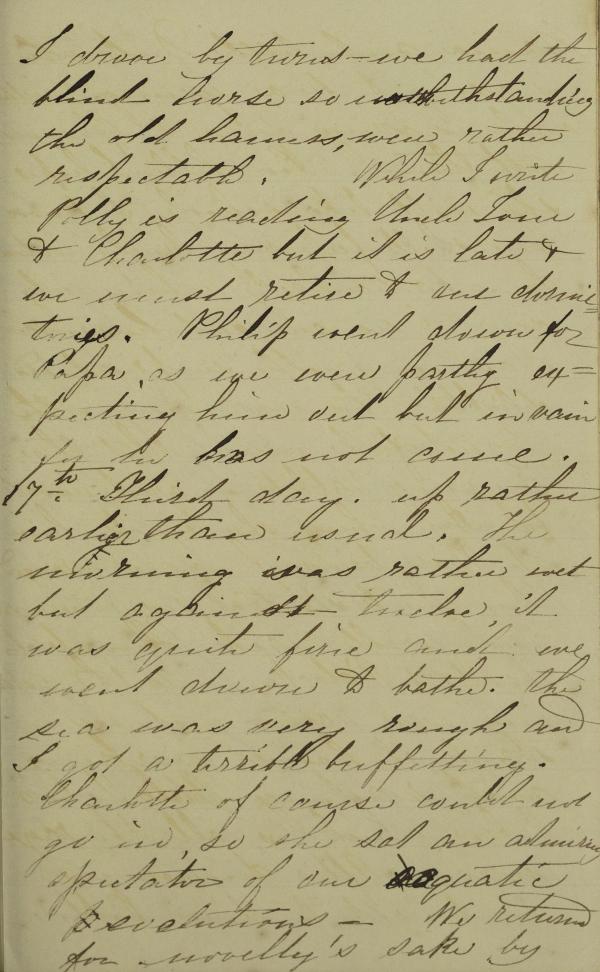 I drove by turns - we had the
blind horse so notwithstanding
the old harness, were rather
respectable. While I write
Polly is reading Uncle Tom
to Charlotte but it is late &
we must retire to our dormi=
tories. Philip went down for
Papa, as we were partly ex=
pecting him out but in vain
for he has not come.
17th Third day. up rather
earlier than usual. The
morning was rather wet
but against twelve, it
was quite fine and we
went down to bathe. the
sea was very rough and
I got a terrible buffetting.
Charlotte of course could not
go in, so she sat an admiring
spectator of our aquatic
evolutions - We returned
for novelty's sake by